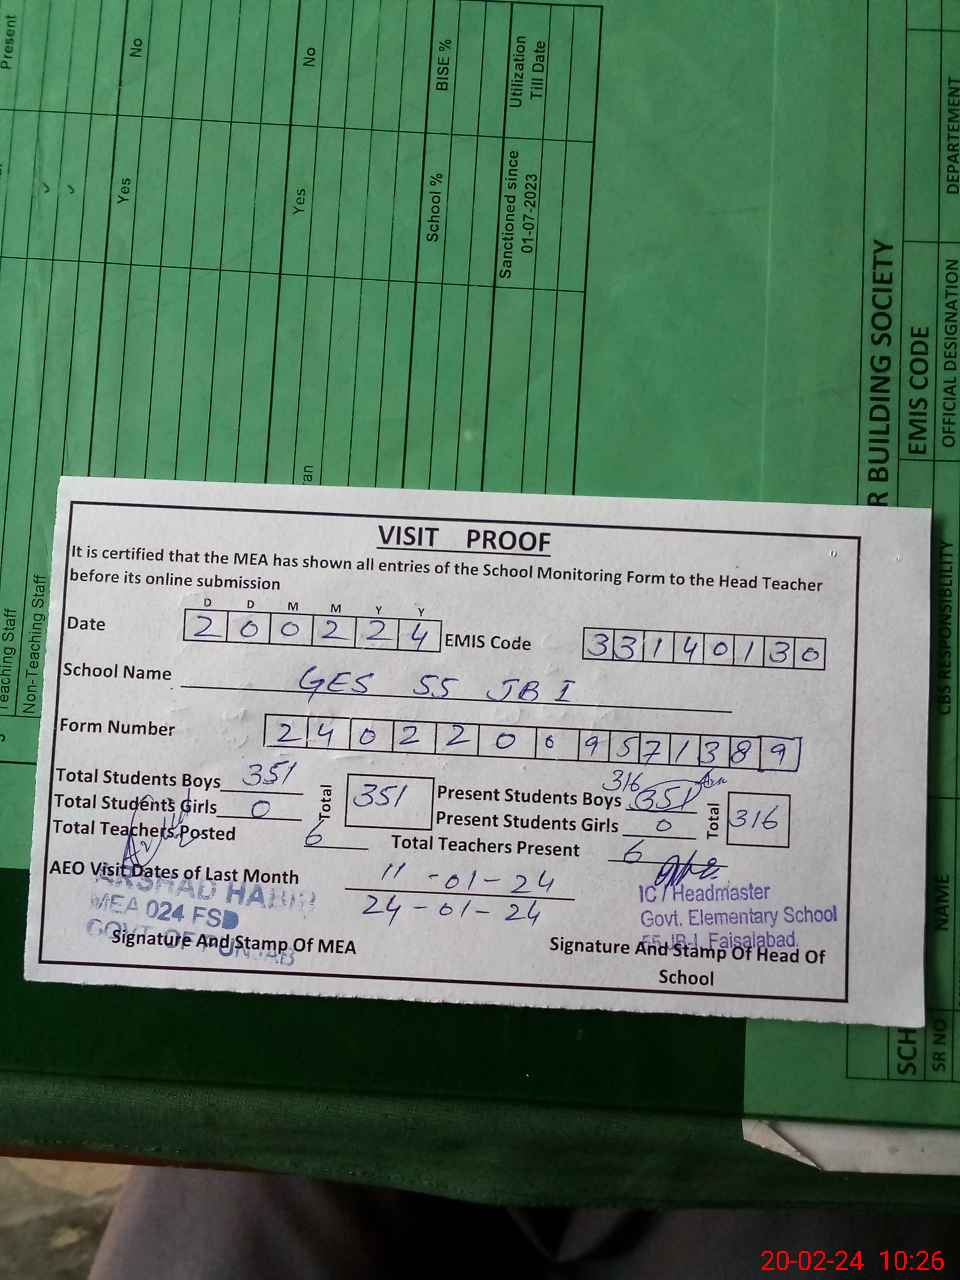 Present
No
No
BISE %
Utilization
Till Date
Yes
Yes
School %
Sanctioned since
01-07-2023
Teaching Staff
Non-Teaching Staff
R BUILDING SOCIETY
EMIS CODE
DEPARTEMENT
OFFICIAL DESIGNATION
CBS RESPONSIBLILITY
NAME
SR NO
SCH
VISIT PROOF
It is certified that the MEA has shown all entries of the School Monitoring Form to the Head Teacher
before its online submission
D D M M Y Y
Date 2 0 0 2 2 4 EMIS Code 3 3 1 4 0 1 3 0
School Name GES 55 JB I
Form Number 2 4 0 2 2 0 0 9 5 7 1 3 8 9
Total Students Boys 351 Total 351 Present Students Boys 316 351 Total 316
Total Students Girls 0 Present Students Girls 0
Total Teachers Posted 6 Total Teachers Present 6
AEO Visit Dates of Last Month 11 -01-24
24-01-24
ARSHAD HABIB
MEA 024 FSD
GOVT. OF PUNJAB
Signature And Stamp Of MEA
IC / Headmaster
Govt. Elementary School
55 JB-I, Faisalabad.
Signature And Stamp Of Head Of
School
20-02-24 10:26